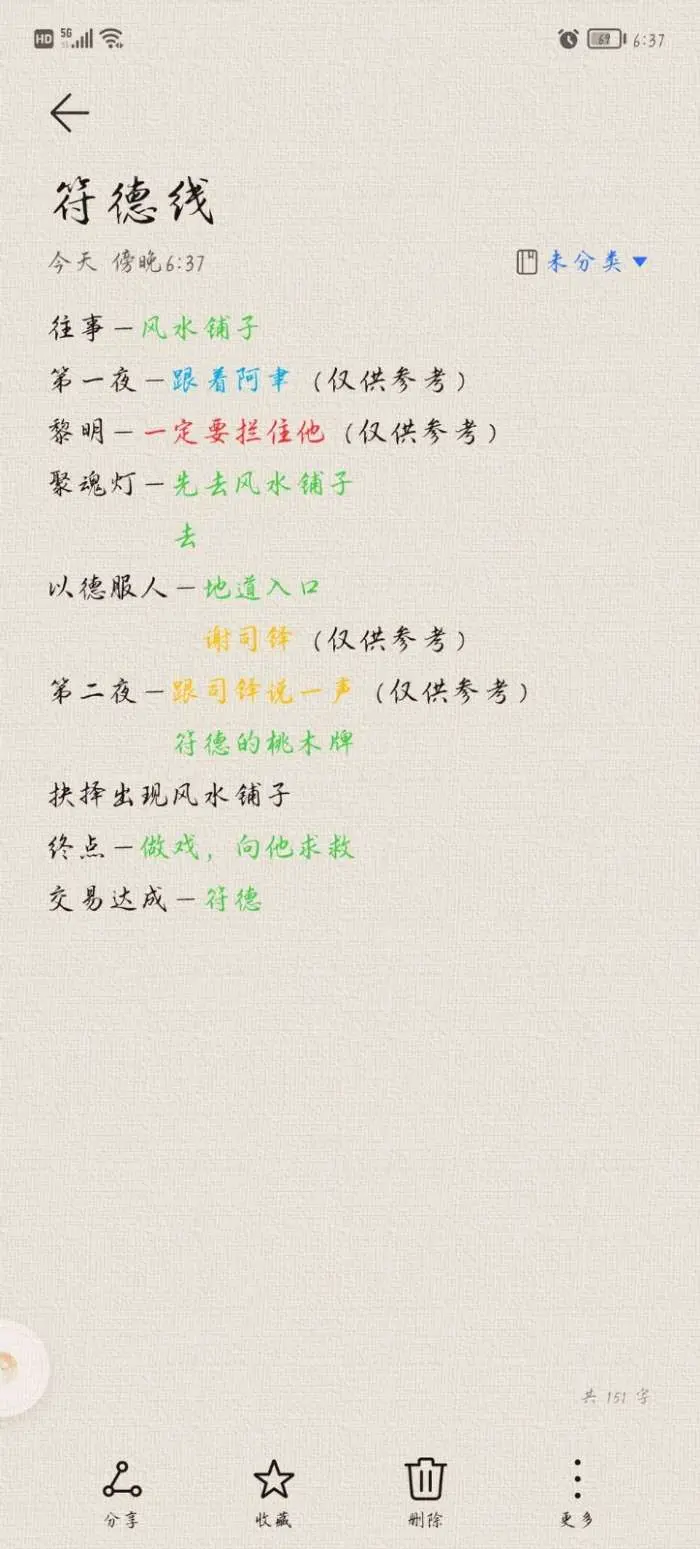 HD 5G 69 6:37
符德线
今天 傍晚6:37 未分类
往事－风水铺子
第一夜－跟着阿聿（仅供参考）
黎明－一定要拦住他（仅供参考）
聚魂灯－先去风水铺子
去
以德服人－地道入口
谢司铎（仅供参考）
第二夜－跟司铎说一声（仅供参考）
符德的桃木牌
抉择出现风水铺子
终点－做戏，向他求救
交易达成－符德
共 151 字
分享 收藏 删除 更多